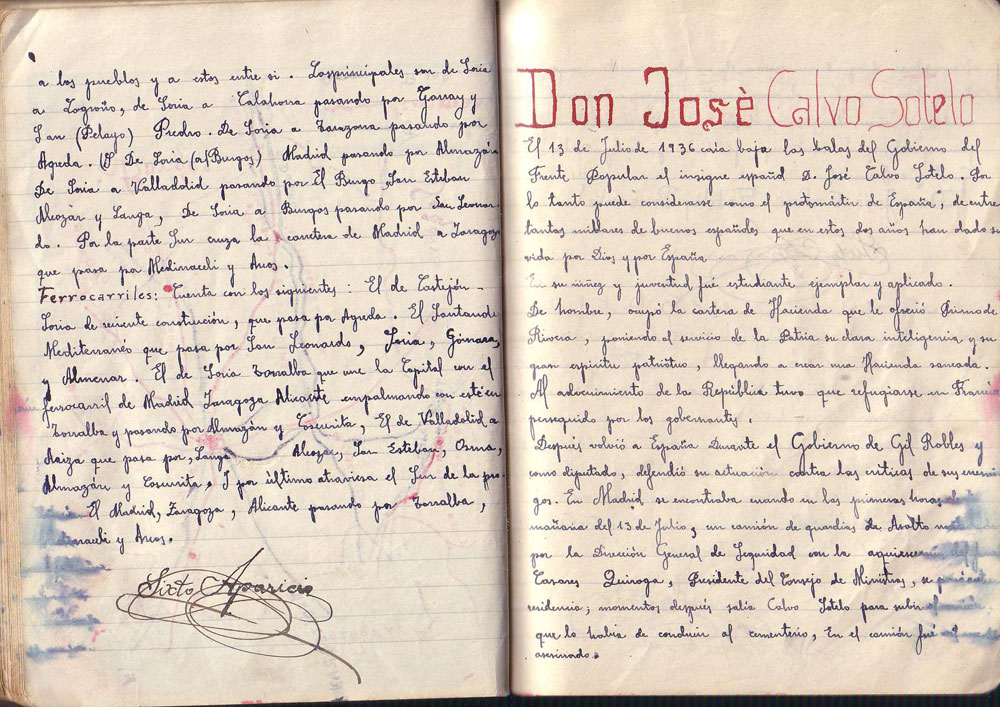 a los pueblos y a estos entre si. Las principales son de Soria
a Logroño, de Soria a Calahorra pasando por Garray y
San (Pelayo) Predro. De Soria a Tarazona pasando por
Agreda. De Soria (a/Burgos) Madrid pasando por Almazán
De Soria a Valladolid pasando por El Burgo San Esteban
Alcozár y Langa, De Soria a Burgos pasando por San Leonar
do. Por la parte Sur cruza la carretera de Madrid a Zaragoza
que pasa por Medinaceli y Arcos.
Ferrocarriles: Cuenta con los siguientes: El de Castejón-
Soria de reciente constución, que pasa por Agreda. El Santander
Mediterraneó que pasa por San Leonardo, Soria, Gómara,
y Almenar. El de Soria Torralba que une la Capital con el
ferrocarril de Madrid Zaragoza Alicante empalmando con este en
Torralba y pasando por Almazán y Coscurita, El de Valladolid a
Ariza que pasa por, Langa Alcozar, San Esteban, Osma,
Almazán y Coscurita, I por último atraviesa el Sur de la pro
El Madrid, Zaragoza, Alicante pasando por Torralba,
naceli y Arcos.
Sixto Aparicio
Don José Calvo Sotelo
El 13 de Julio de 1936 caia bajo las balas del Gobierno del
Frente Popular el insigne español D. José Calvo Sotelo. Por
lo tanto puede considerarse como el protomártir de España, de entre
tantos millares de buenos españoles que en estos dos años han dado su
vida por Dios y por España
En su niñez y juventud fué estudiante ejemplar y aplicado.
De hombre, ocupó la cartera de Hacienda que le ofreció Primo de
Rivera, poniendo al servicio de la Patria su clara inteligencia y su
gran espiritu patriótico, llegando a crear una Hacienda saneada.
Al advenimiento de la República tuvo que refugiarse en Francia
perseguido por los gobernantes.
Después volvió a España Durante el Gobierno de Gil Robles y
como diputado, defendió su actuación contra las criticas de sus enemi
gos. En Madrid se encontraba cuando en las primeras horas
mañana del 13 de Julio, un camión de guardias de Asalto
por la Dirección General de Seguridad con la aquiesce
Casares Quiroga, Presidente del Consejo de Ministros, se
residencia, momentos después salia Calvo Sotelo para subir
que lo habia de conducir al cementerio, En el camión fué
asesinado.